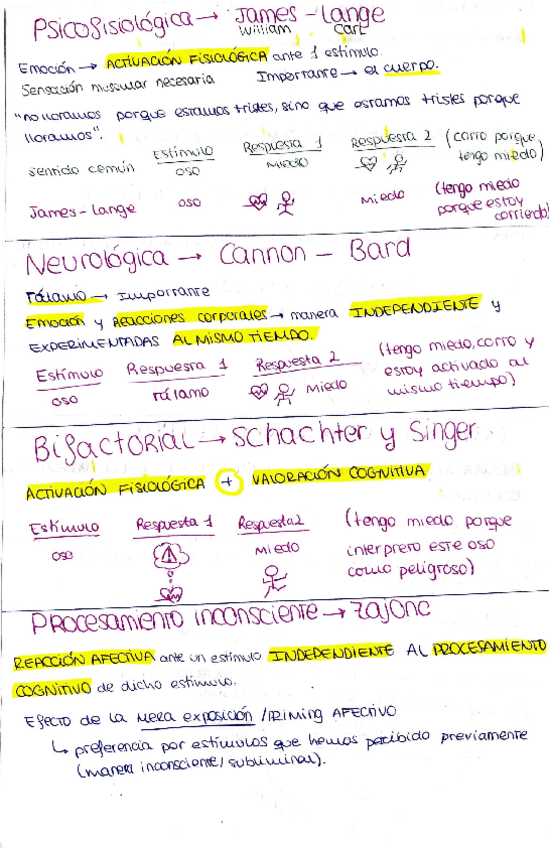 Psicofisiológica → James - Lange
William Carl
Emoción → ACTIVACIÓN FISIOLÓGICA ante 1 estímulo.
Sensación muscular necesaria Importante → el cuerpo.
"no lloramos porque estamos tristes, sino que estamos tristes porque
lloramos".
Estímulo Respuesta 1 Respuesta 2 (corro porque
sentido común oso MIEDO tengo miedo)
James-Lange oso MIEDO (tengo miedo
porque estoy
corriendo)
Neurológica → Cannon - Bard
Tálamo → Importante
Emoción y Reacciones corporales → manera INDEPENDIENTE y
EXPERIMENTADAS AL MISMO TIEMPO.
Estímulo Respuesta 1 Respuesta 2 (tengo miedo, corro y
oso tálamo Miedo estoy activado al
mismo tiempo)
Bifactorial → Schachter y Singer
ACTIVACIÓN FISIOLÓGICA + VALORACIÓN COGNITIVA
Estímulo Respuesta 1 Respuesta 2 (tengo miedo porque
oso MIEDO interpreto este oso
como peligroso)
Procesamiento inconsciente → Zajonc
REACCIÓN AFECTIVA ante un estímulo INDEPENDIENTE AL PROCESAMIENTO
COGNITIVO de dicho estímulo.
EFECTO DE LA MERA EXPOSICIÓN / PRIMING AFECTIVO
↳ preferencia por estímulos que hemos percibido previamente
(manera inconsciente/subliminal).